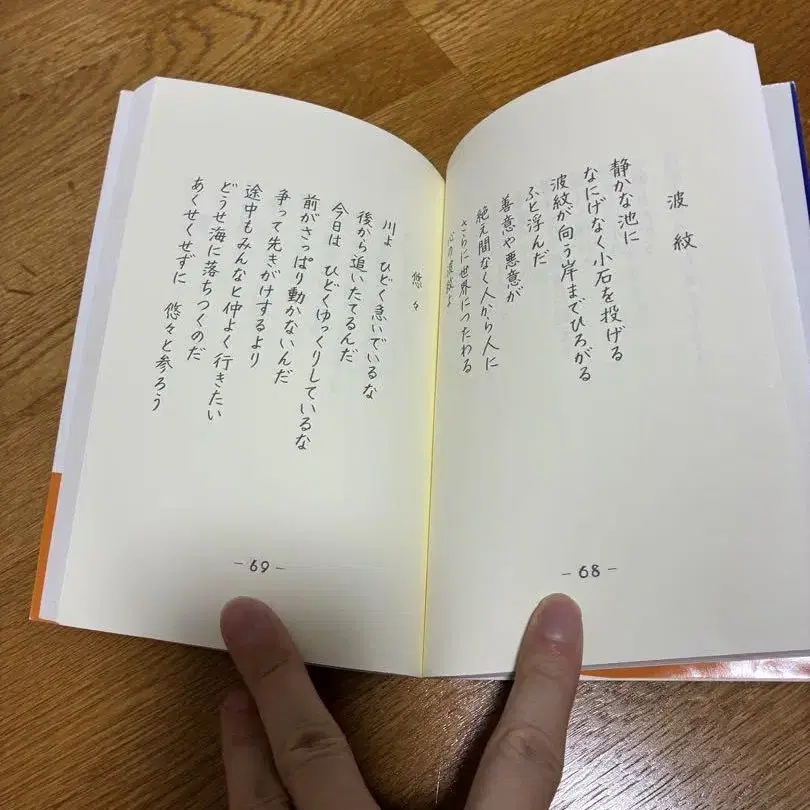 波紋
静かな池に
なにげなく小石を投げる
波紋が向う岸までひろがる
ふと浮んだ
善意や悪意が
絶え間なく人から人に
さらに世界につたわる
心の波紋よ
－68－
悠々
川よ ひどく急いでいるな
後から追いたてるんだ
今日は ひどくゆっくりしているな
前がさっぱり動かないんだ
争って先きがけするより
途中もみんなと仲よく行きたい
どうせ海に落ちつくのだ
あくせくせずに 悠々と参ろう
－69－